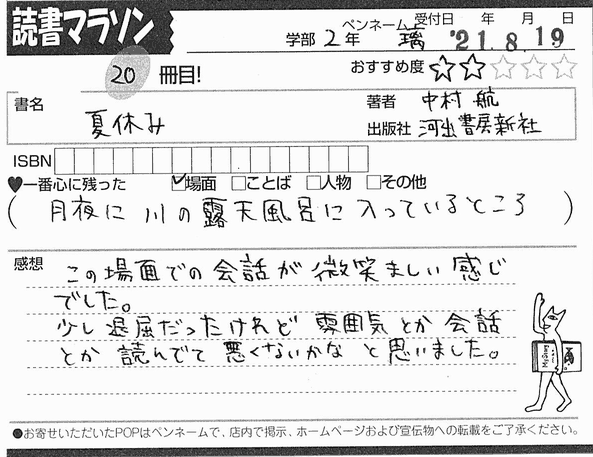 読書マラソン
学部 2年 ペンネーム 璃 受付日 年 月 日 '21.8.19
20 冊目! おすすめ度 ☆☆☆☆☆
書名 夏休み
著者 中村 航
出版社 河出書房新社
ISBN
♥一番心に残った ☑場面 □ことば □人物 □その他
( 月夜に 川の露天風呂に入っているところ )
感想
この場面での会話が微笑ましい感じ
でした。
少し退屈だったけれど 雰囲気とか会話
とか 読んでて 悪くないかな と思いました。
●お寄せいただいたPOPはペンネームで、店内で掲示、ホームページおよび宣伝物への転載をご了承ください。